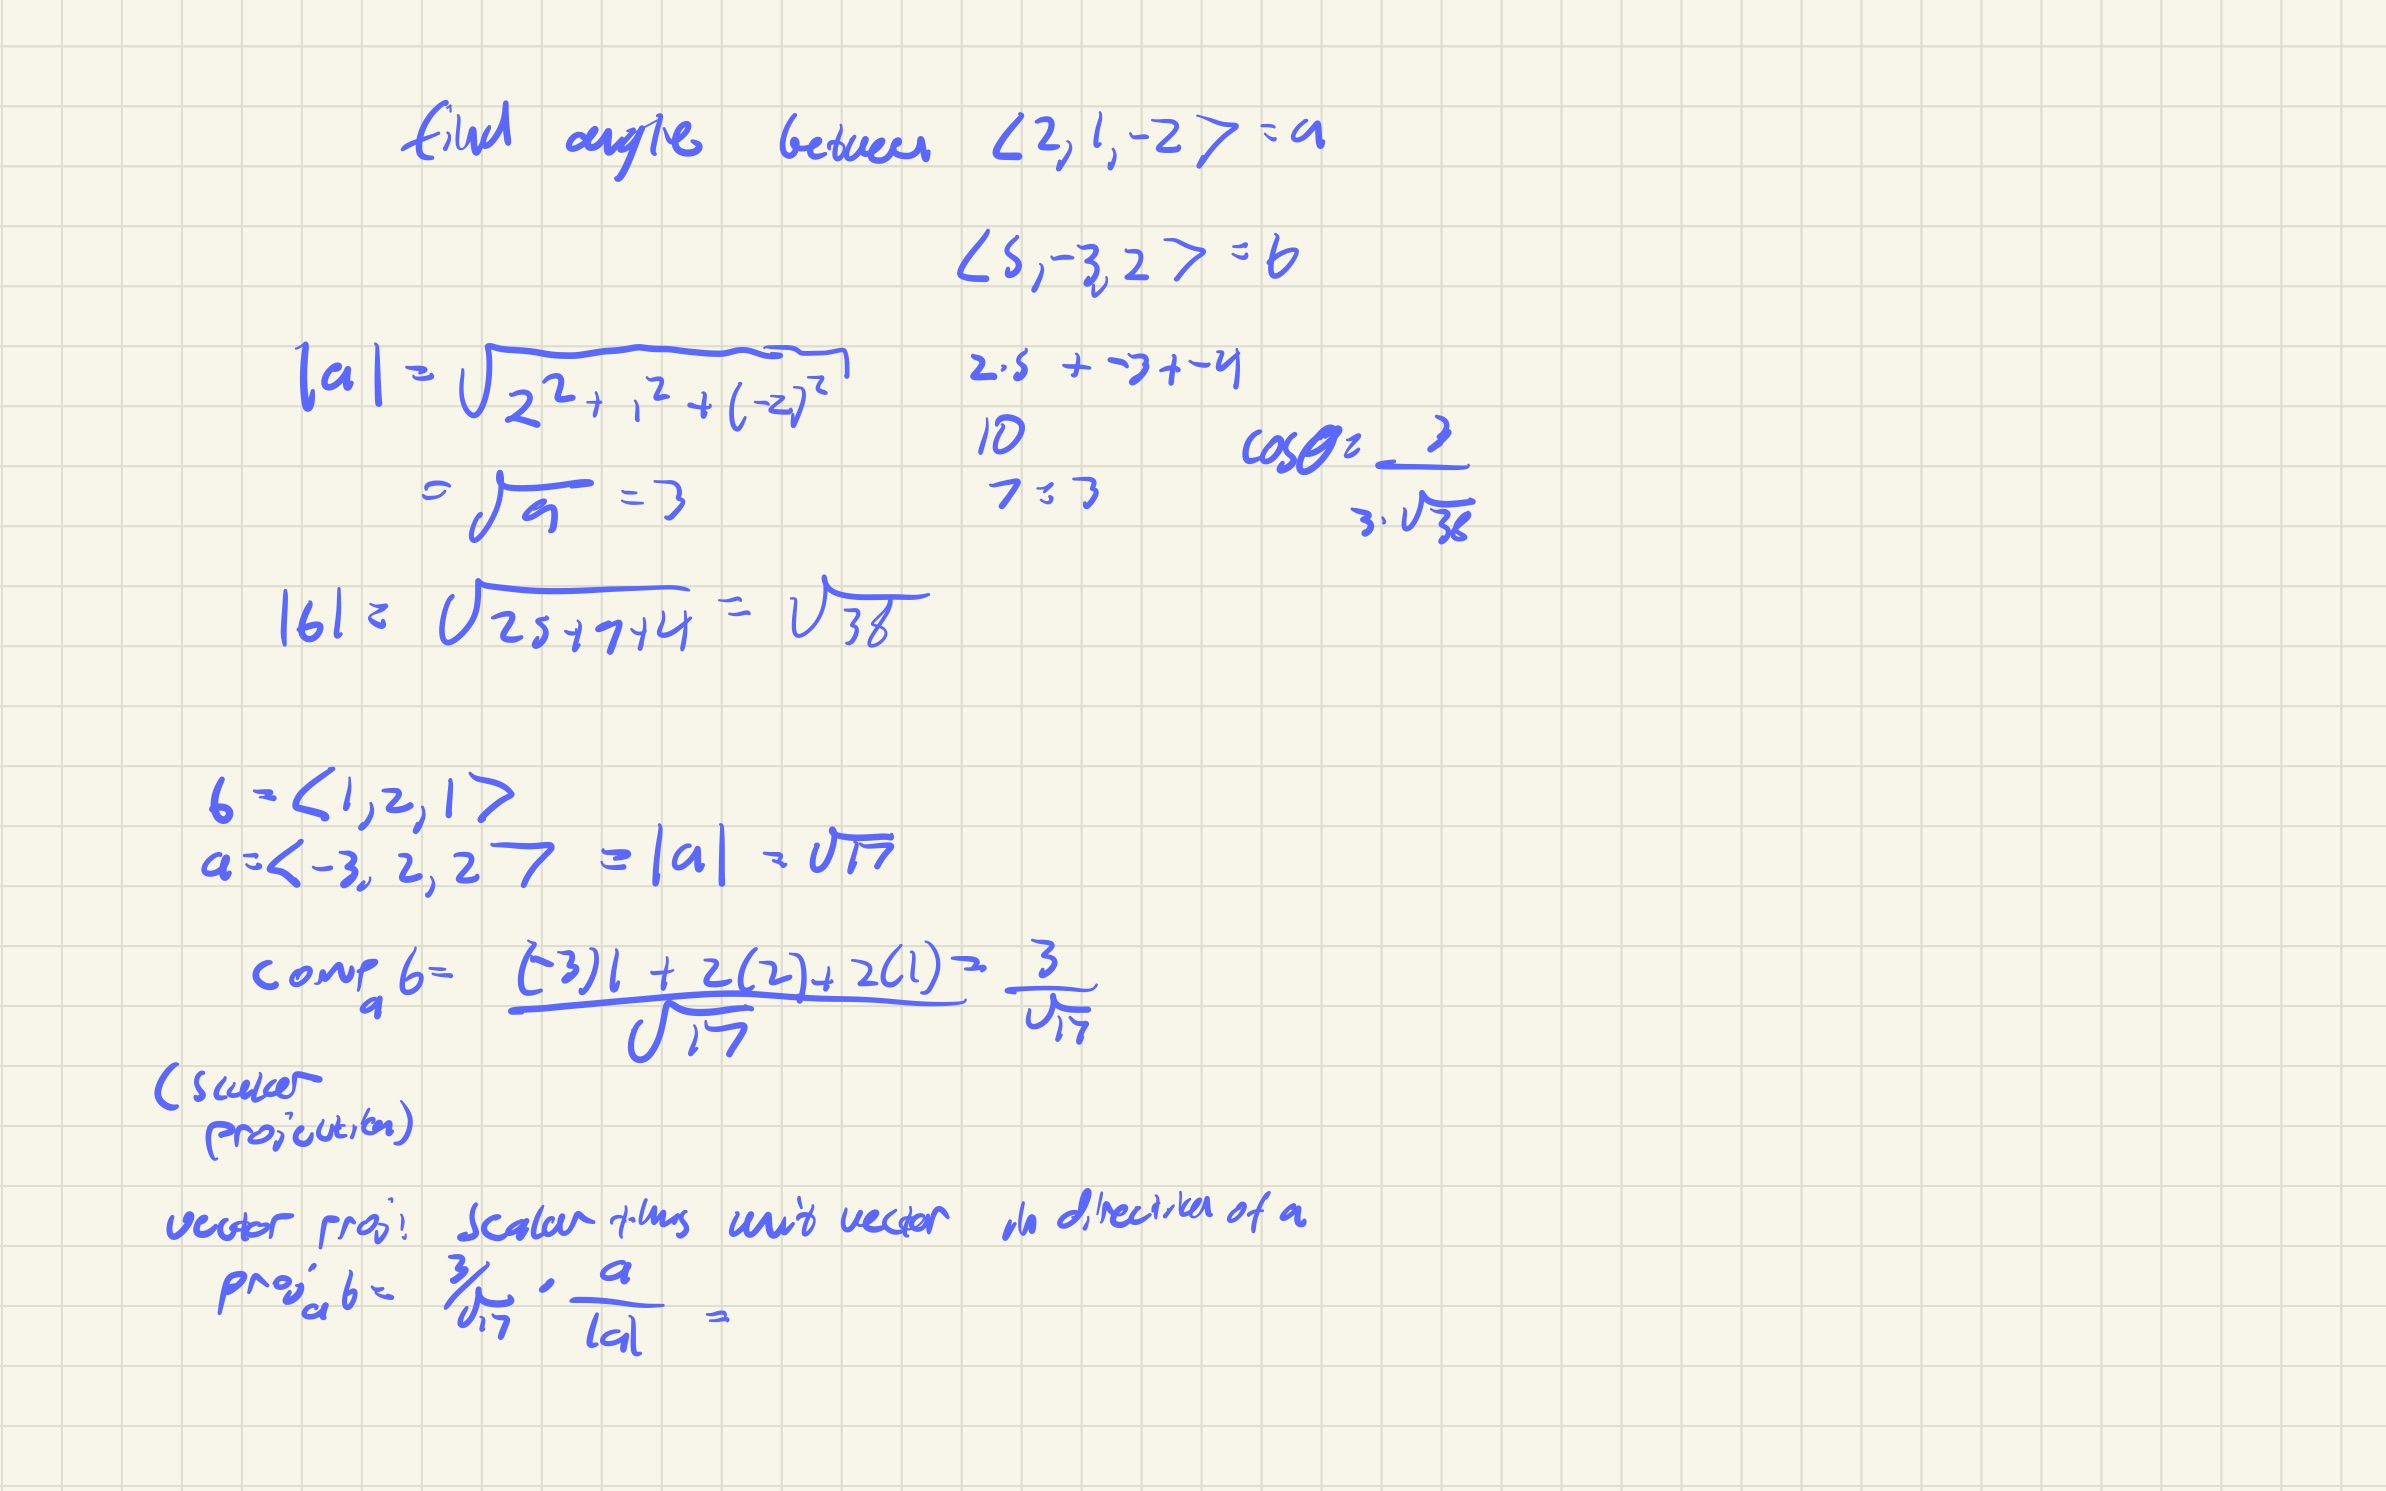 find angles between <2, 1, -2> = a
<5, -3, 2> = b
|a| = √(2² + 1² + (-2)²)
= √9 = 3
2·5 + -3 + -4
10
7 = 3
cosθ = 3 / 3·√38
|b| = √(25+9+4) = √38
b = <1, 2, 1>
a = <-3, 2, 2> = |a| = √17
comp_a b = (-3)1 + 2(2) + 2(1) / √17 = 3 / √17
(scalar
projection)
vector proj: scalar times unit vector in direction of a
proj_a b = 3/√17 · a / |a| =